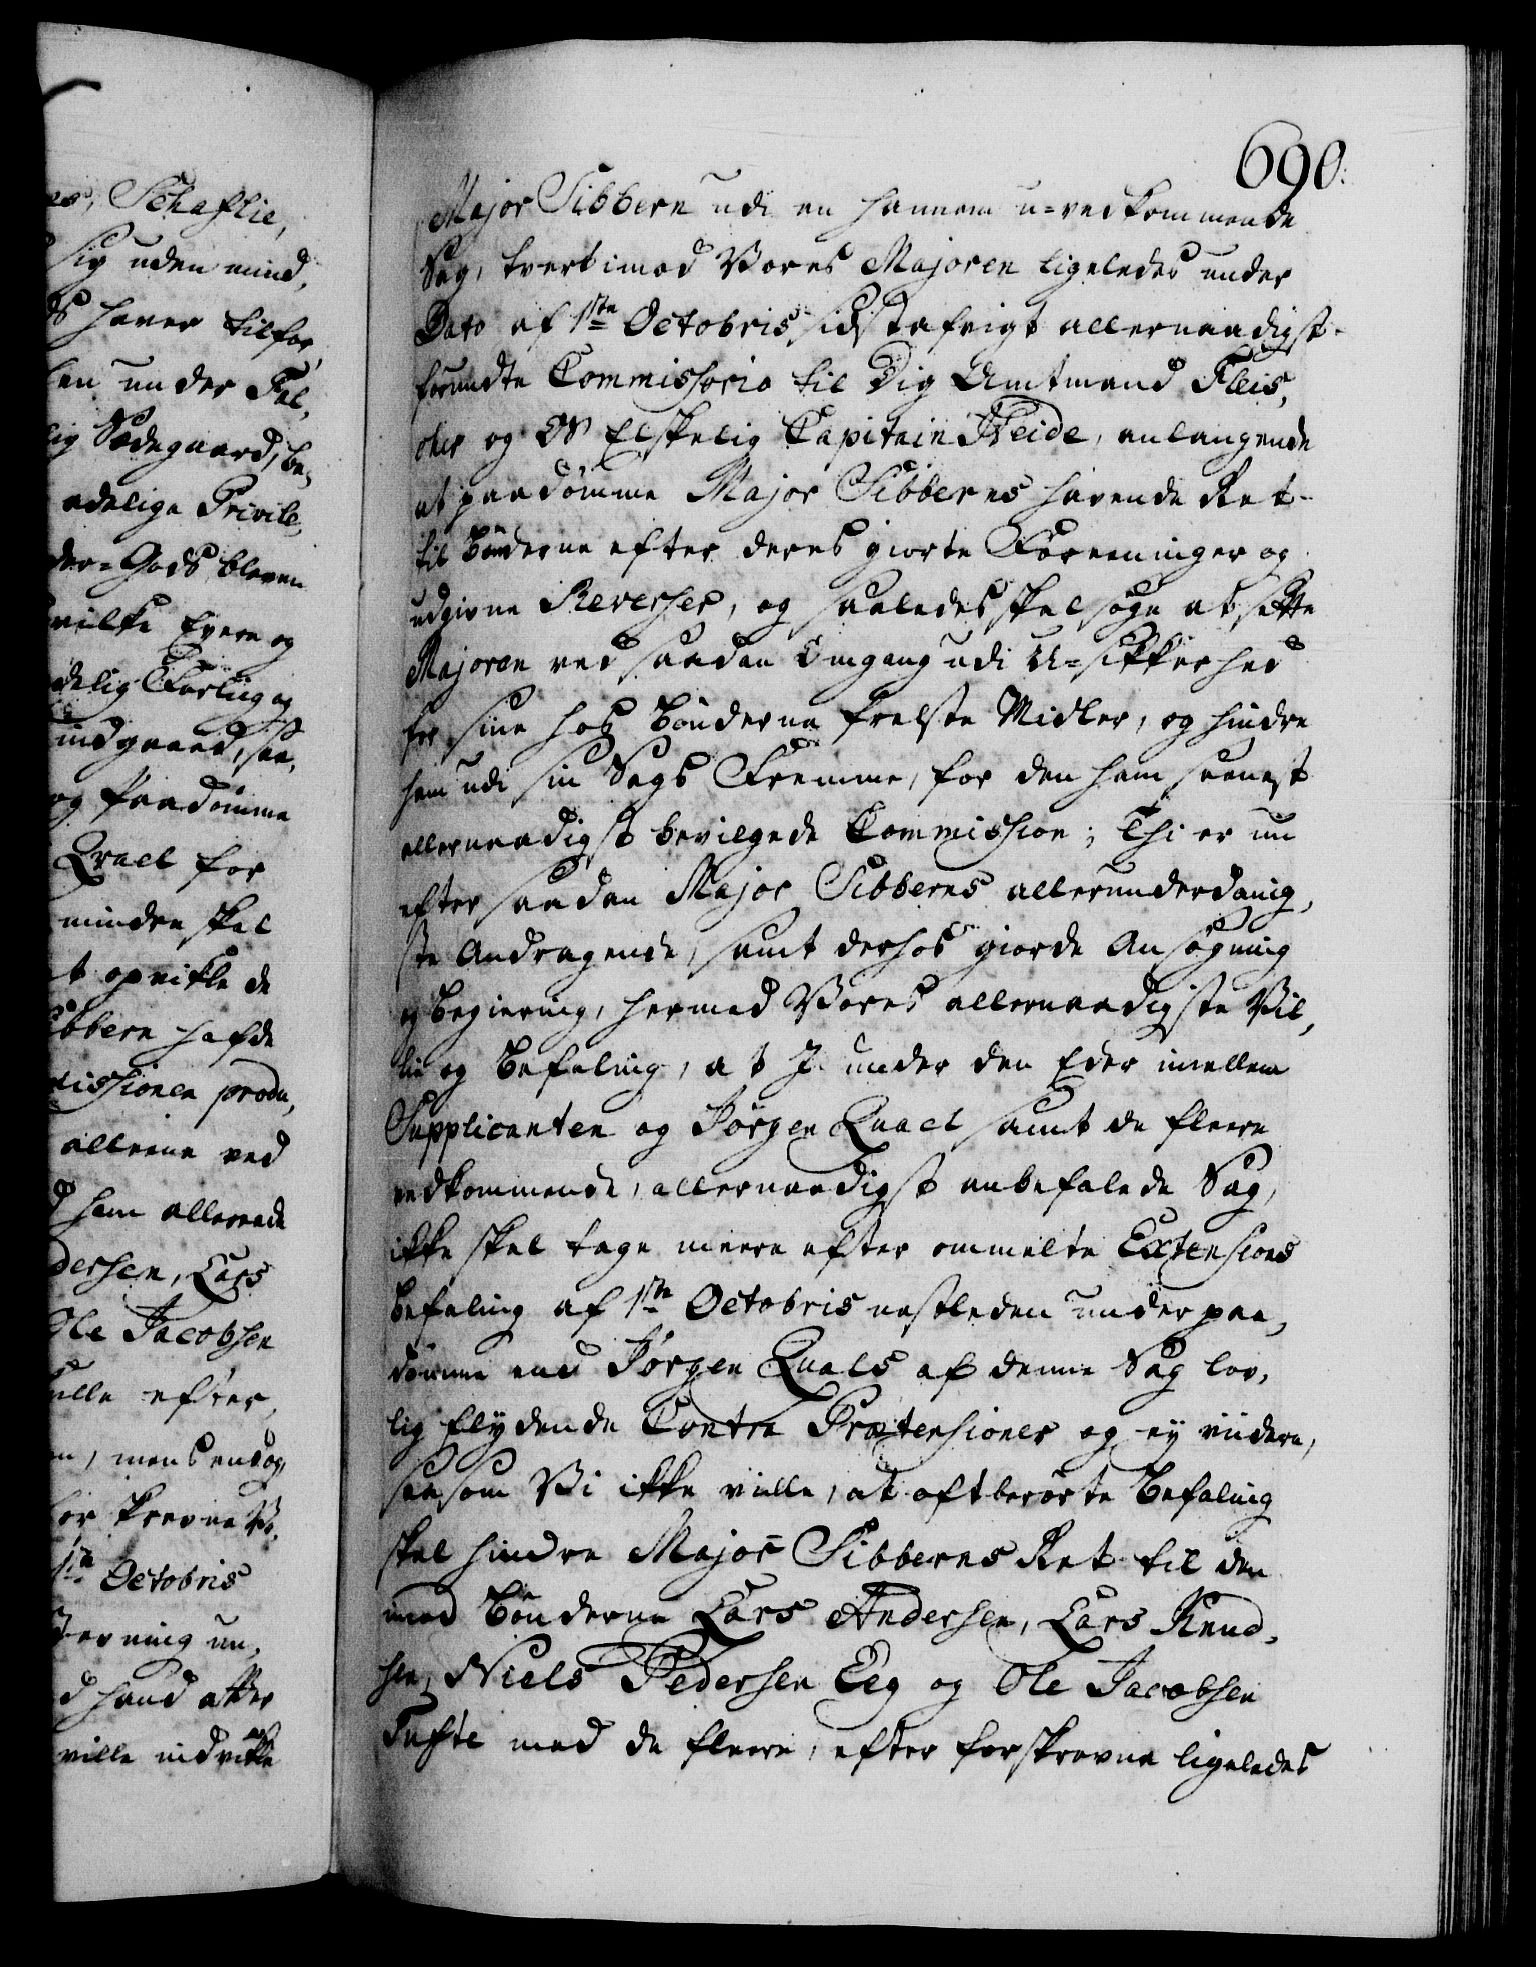 es, Schaflie,
sig uden mind,
ds haver tilfor,
len under Fal,
lig Sædegaard, be,
adelige Privile,
der=Gods bleven
hvilke Eyere og
delig Forliig og
indgaaed, saa,
og paadømme
Qvael for
mindre skal
t opvikle de
ibbern hafde
missionen produ,
alleene ved
d ham allerede
dersen, Lars
Ole Jacobsen
ulle efter,
n, mens endog
for skrevne Vo,
1ste Octobris
Jevning un,
d hand atter
ville indvikle
690.
Major Sibbern udi en hannem u=vedkommende
Sag, tvertimod Vores Majoren ligeledes under
Dato af 1ste Octobris sidstafvigt allernaadigst
forundte Commissorio til Dig Amtmand Fleis,
cher og Os Elskelig Capitain Heide, anlangende
at paadømme Major Sibberns havende Ret
til Bønderne efter deres giorte Foreeninger og
udgivne Reverser, og saaledes skal søge at sætte
Majoren ved saadan Omgang udi U=sikkerhed
for sine hos Bønderne frelste Midler, og hindre
ham udi sin Sags Fremme, for den ham seenest
allernaadigst bevilgede Commission; Thi er nu
efter saadan Major Sibberns allerunderdanig,
ste Andragende, samt derhos giorde Ansøgning
og Begiering, hermed Vores allernaadigste Vil,
lie og Befaling, at I under den Eder imellem
Supplicanten og Jørgen Qvael samt de fleere
vedkommende, allernaadigst anbefalede Sag,
ikke skal tage meere efter ommelte Extensions
Befaling af 1ste Octobris nestleden under paa,
dømme end Jørgen Qvaels af denne Sag lov,
lig flydende Contra Prætensioner og ey viidere,
saasom Vi ikke ville, at oftberørte Befaling
skal hindre Major Sibberns Ret til den
imod Bønderne Lars Andersen, Lars Knud,
sen, Niels Pedersen Eeg og Ole Jacobsen
Tufste med de fleere, efter forskrevne ligeledes